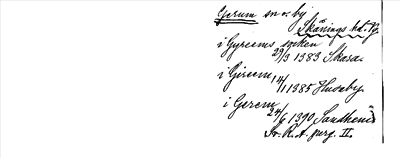 Gerum sn o. by
Skånings hd. Vg.
i Gyreems socken
29/3 1383 Skara.
i Gireem, 14/1 1385 Huseby.
i Gerem
24/6 1390 Sandhem
Sv. R. A. perg. II.